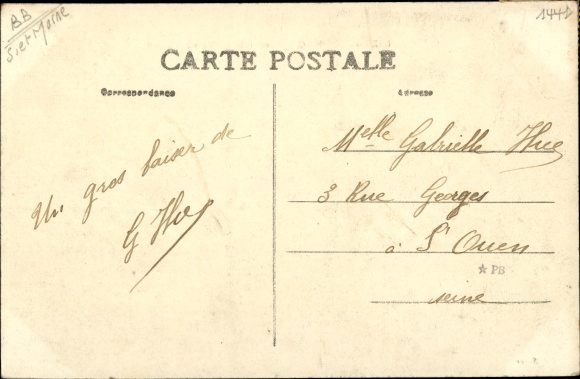 BB
S et Marne
1441
CARTE POSTALE
Correspondance
Adresse
Un gros baiser de
G Hue
Melle Gabrielle Hue
3 Rue Georges
à St Ouen
★ PB
seine